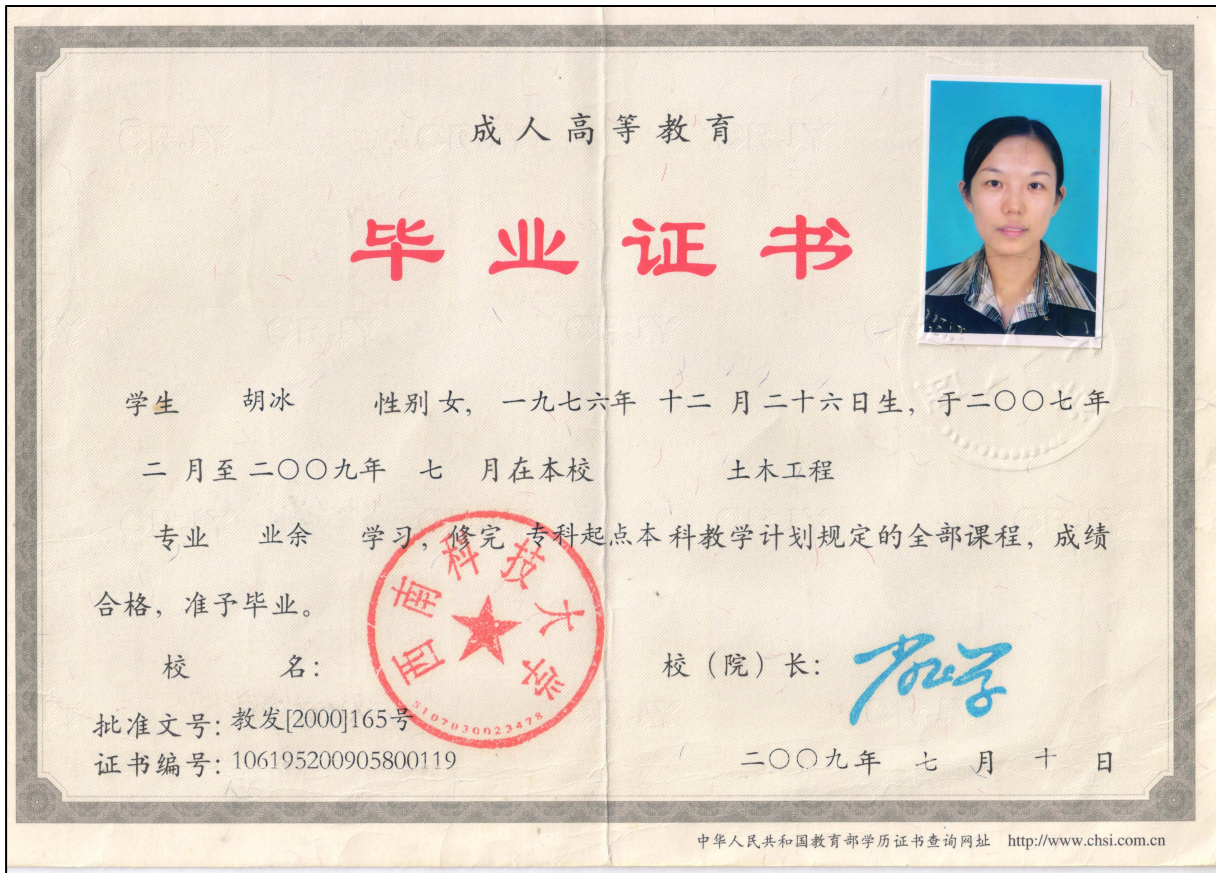 成人高等教育
毕业证书
学生 胡冰 性别 女, 一九七六年 十二 月 二十六日生, 于二〇〇七年
二 月至 二〇〇九年 七 月在本校 土木工程
专业 业余 学习, 修完 专科起点本科教学计划规定的全部课程, 成绩
合格, 准予毕业。
校 名: 校（院）长:
西南科技大学
5107030023478
批准文号: 教发[2000]165号
证书编号: 106195200905800119
二〇〇九年 七 月 十 日
中华人民共和国教育部学历证书查询网址 http://www.chsi.com.cn